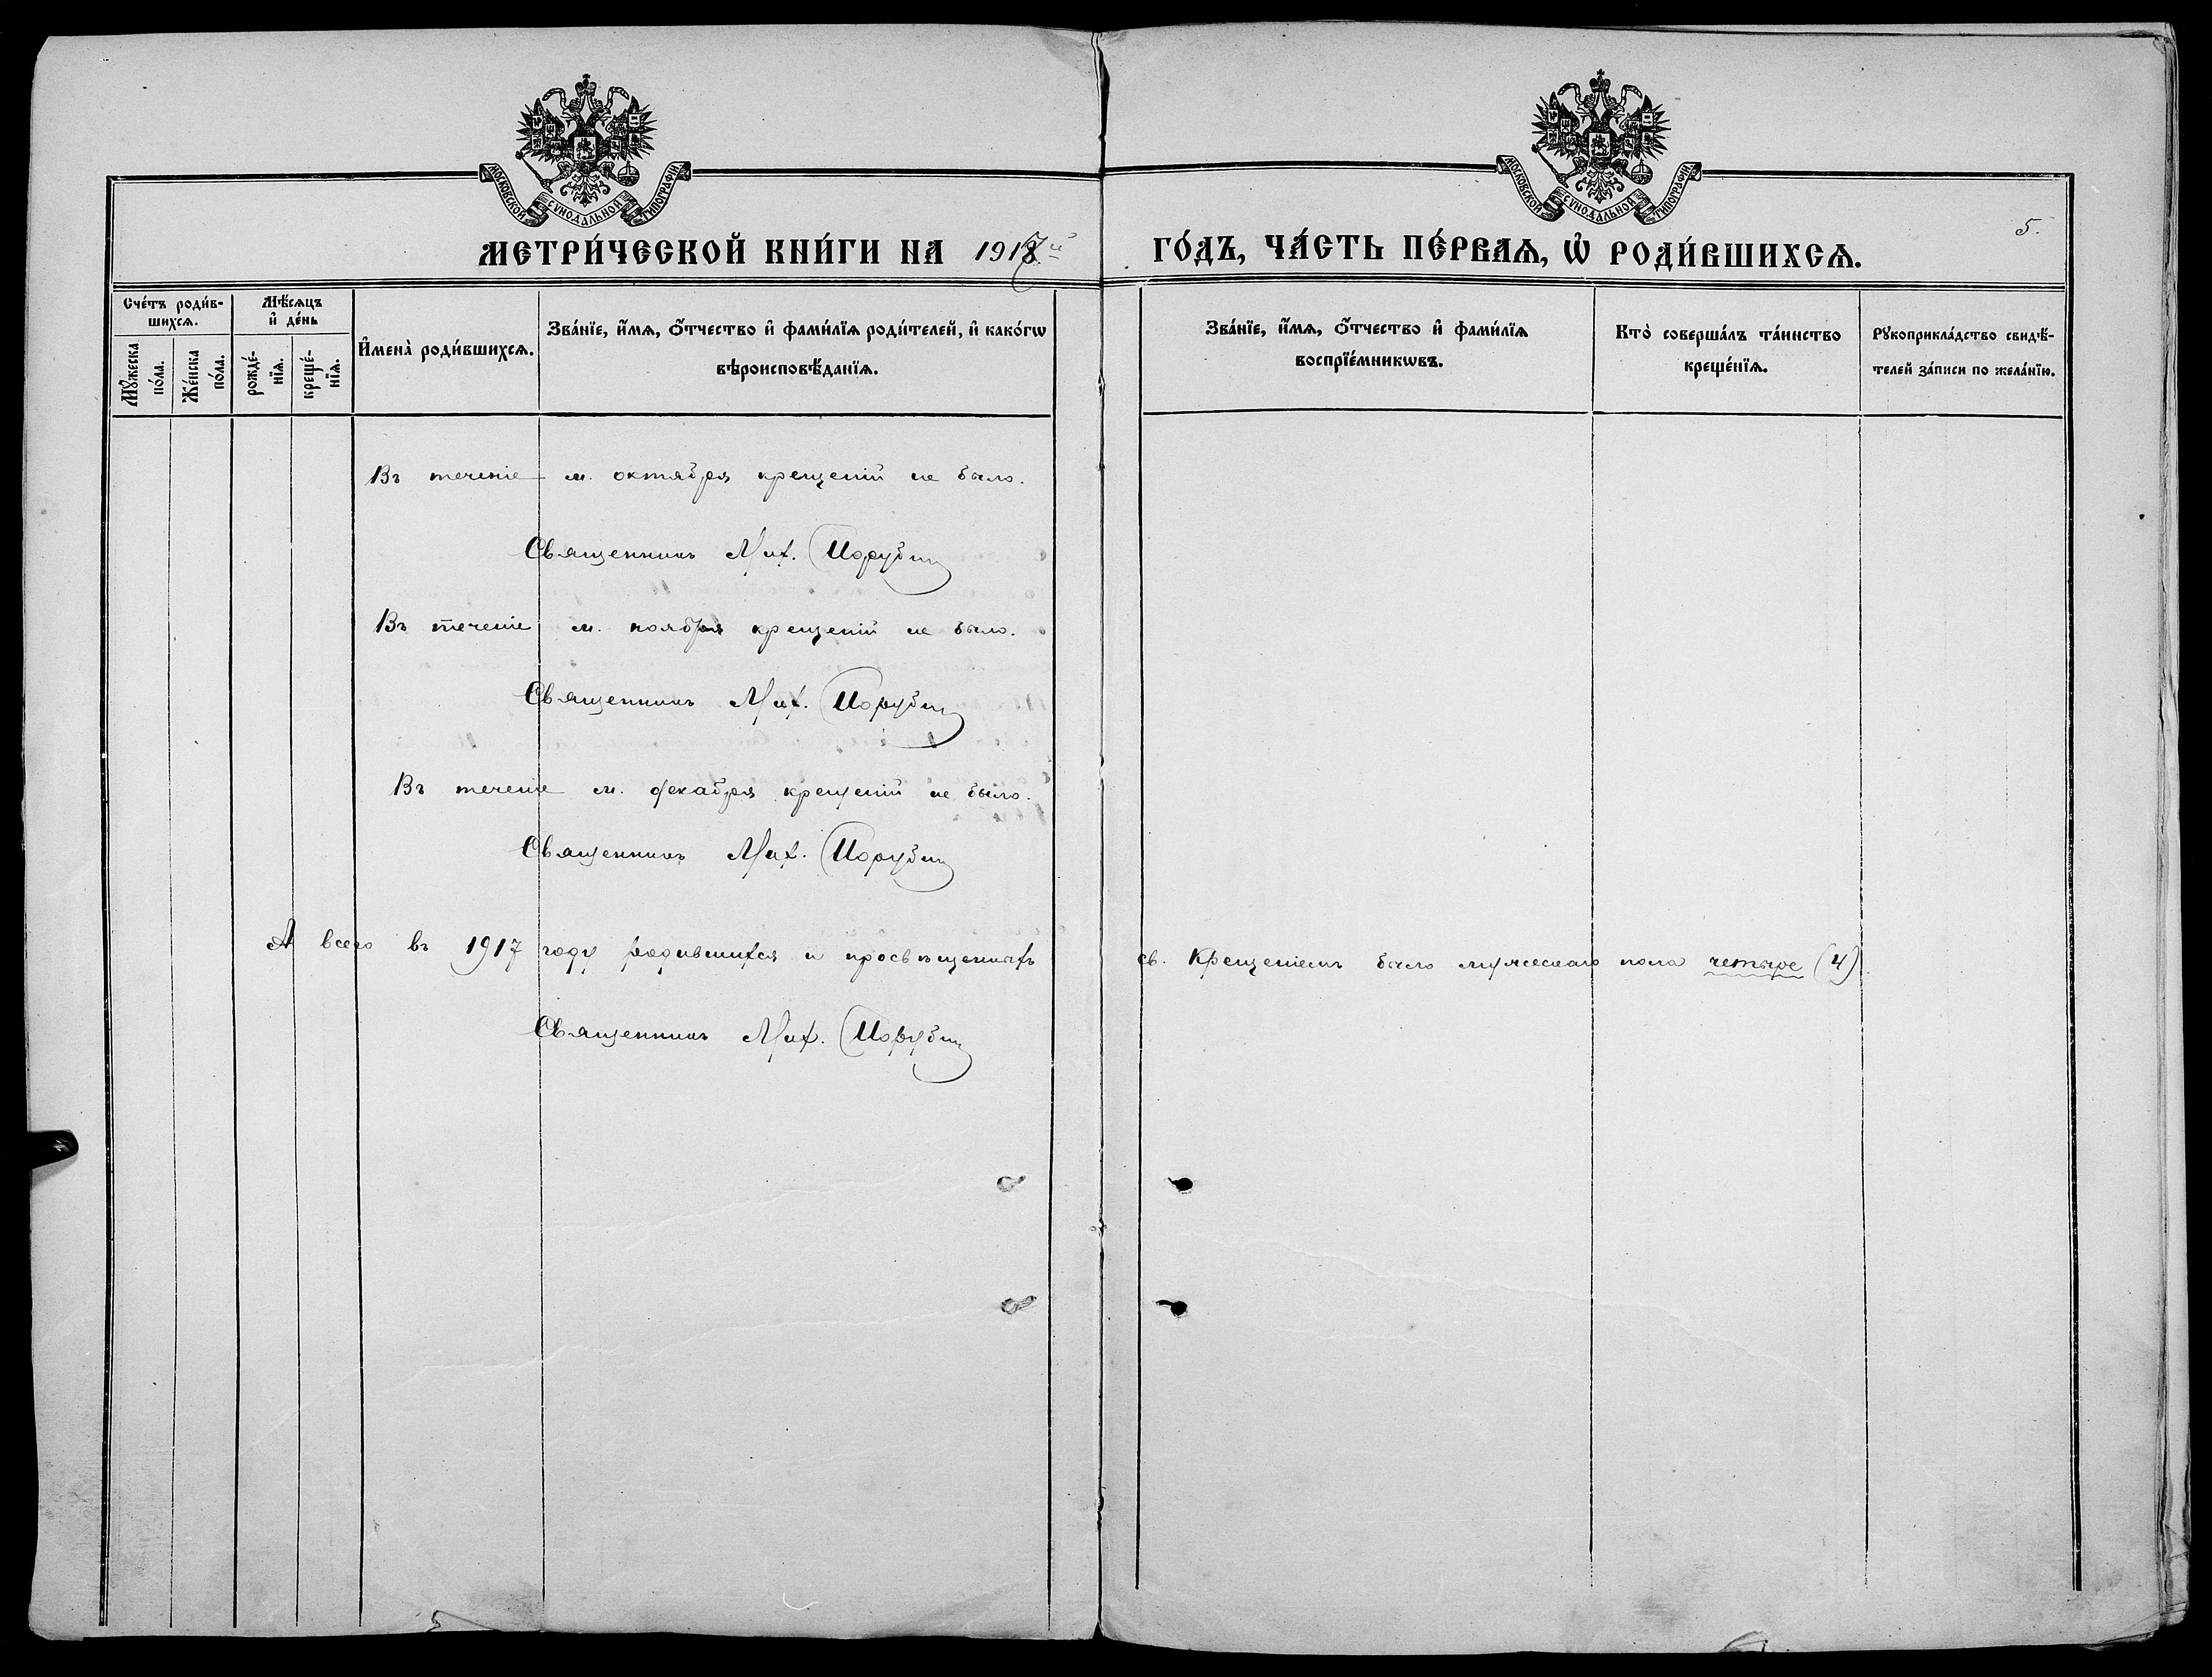 МОСКОВСКОЙ СѴНОДАЛЬНОЙ ТИПОГРАФІИ
МОСКОВСКОЙ СѴНОДАЛЬНОЙ ТИПОГРАФІИ
5.
МЕТРИ́ЧЕСКОЙ КНИ́ГИ НА 1917й ГО́ДЪ, ЧА́СТЬ ПЕ́РВАѦ, Ѽ РОДИ́ВШИХСѦ.
Сче́тъ роди́в-
шихсѧ.
Мꙋ́жеска
по́ла.
Же́нска
по́ла.
Мѣ́сѧцъ
и҆ де́нь
рожде́-
нїѧ.
креще́-
нїѧ.
И҆мена̀ роди́вшихсѧ.
Зва́нїе, и҆́мѧ, ѻ҆́тчество и҆ фами́лїѧ роди́телей, и҆ како́гѡ
вѣроисповѣ́данїѧ.
Зва́нїе, и҆́мѧ, ѻ҆́тчество и҆ фами́лїѧ
воспрїе́мникѡвъ.
Кто̀ соверша́лъ та́инство
креще́нїѧ.
Рꙋкоприкла́дство свидѣ́-
телей за́писи по жела́нїю.
Въ теченіе м. октября крещеній не было.
Священникъ Мих.
Въ теченіе м. ноября крещеній не было.
Священникъ Мих.
Въ теченіе м. декабря крещеній не было.
Священникъ Мих.
А всего въ 1917 году родившихся и просвѣщенныхъ св. Крещеніемъ было мужескаго пола четыре (4).
Священникъ Мих.